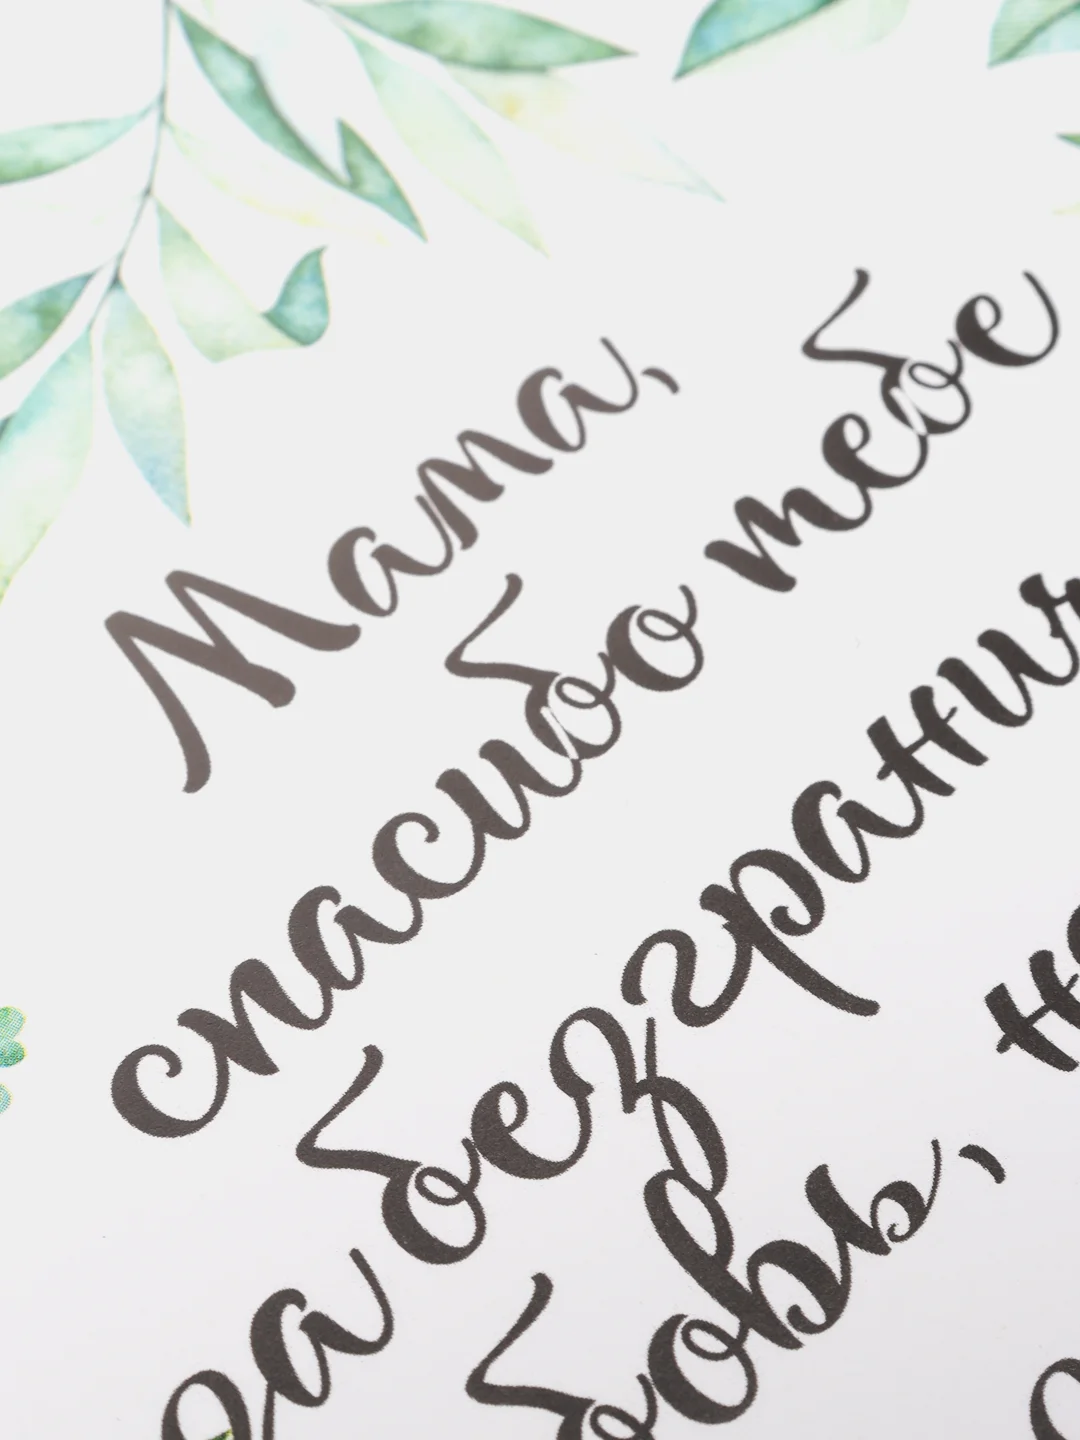 Мама,
спасибо тебе
за безгранич
бовь,